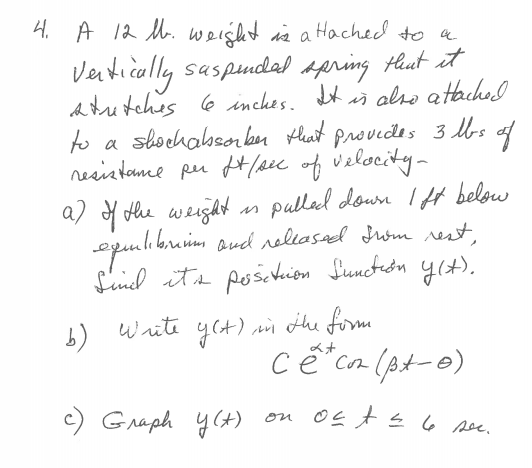 4. A 12 lb. weight is attached to a
vertically suspended spring that it
stretches 6 inches. It is also attached
to a shockabsorber that provides 3 lbs of
resistance per ft/sec of velocity-
a) If the weight is pulled down 1 ft below
equilibrium and released from rest,
find its position function y(t).
b) Write y(t) in the form
C e^{αt} cos (βt-θ)
c) Graph y(t) on 0 ≤ t ≤ 6 sec.